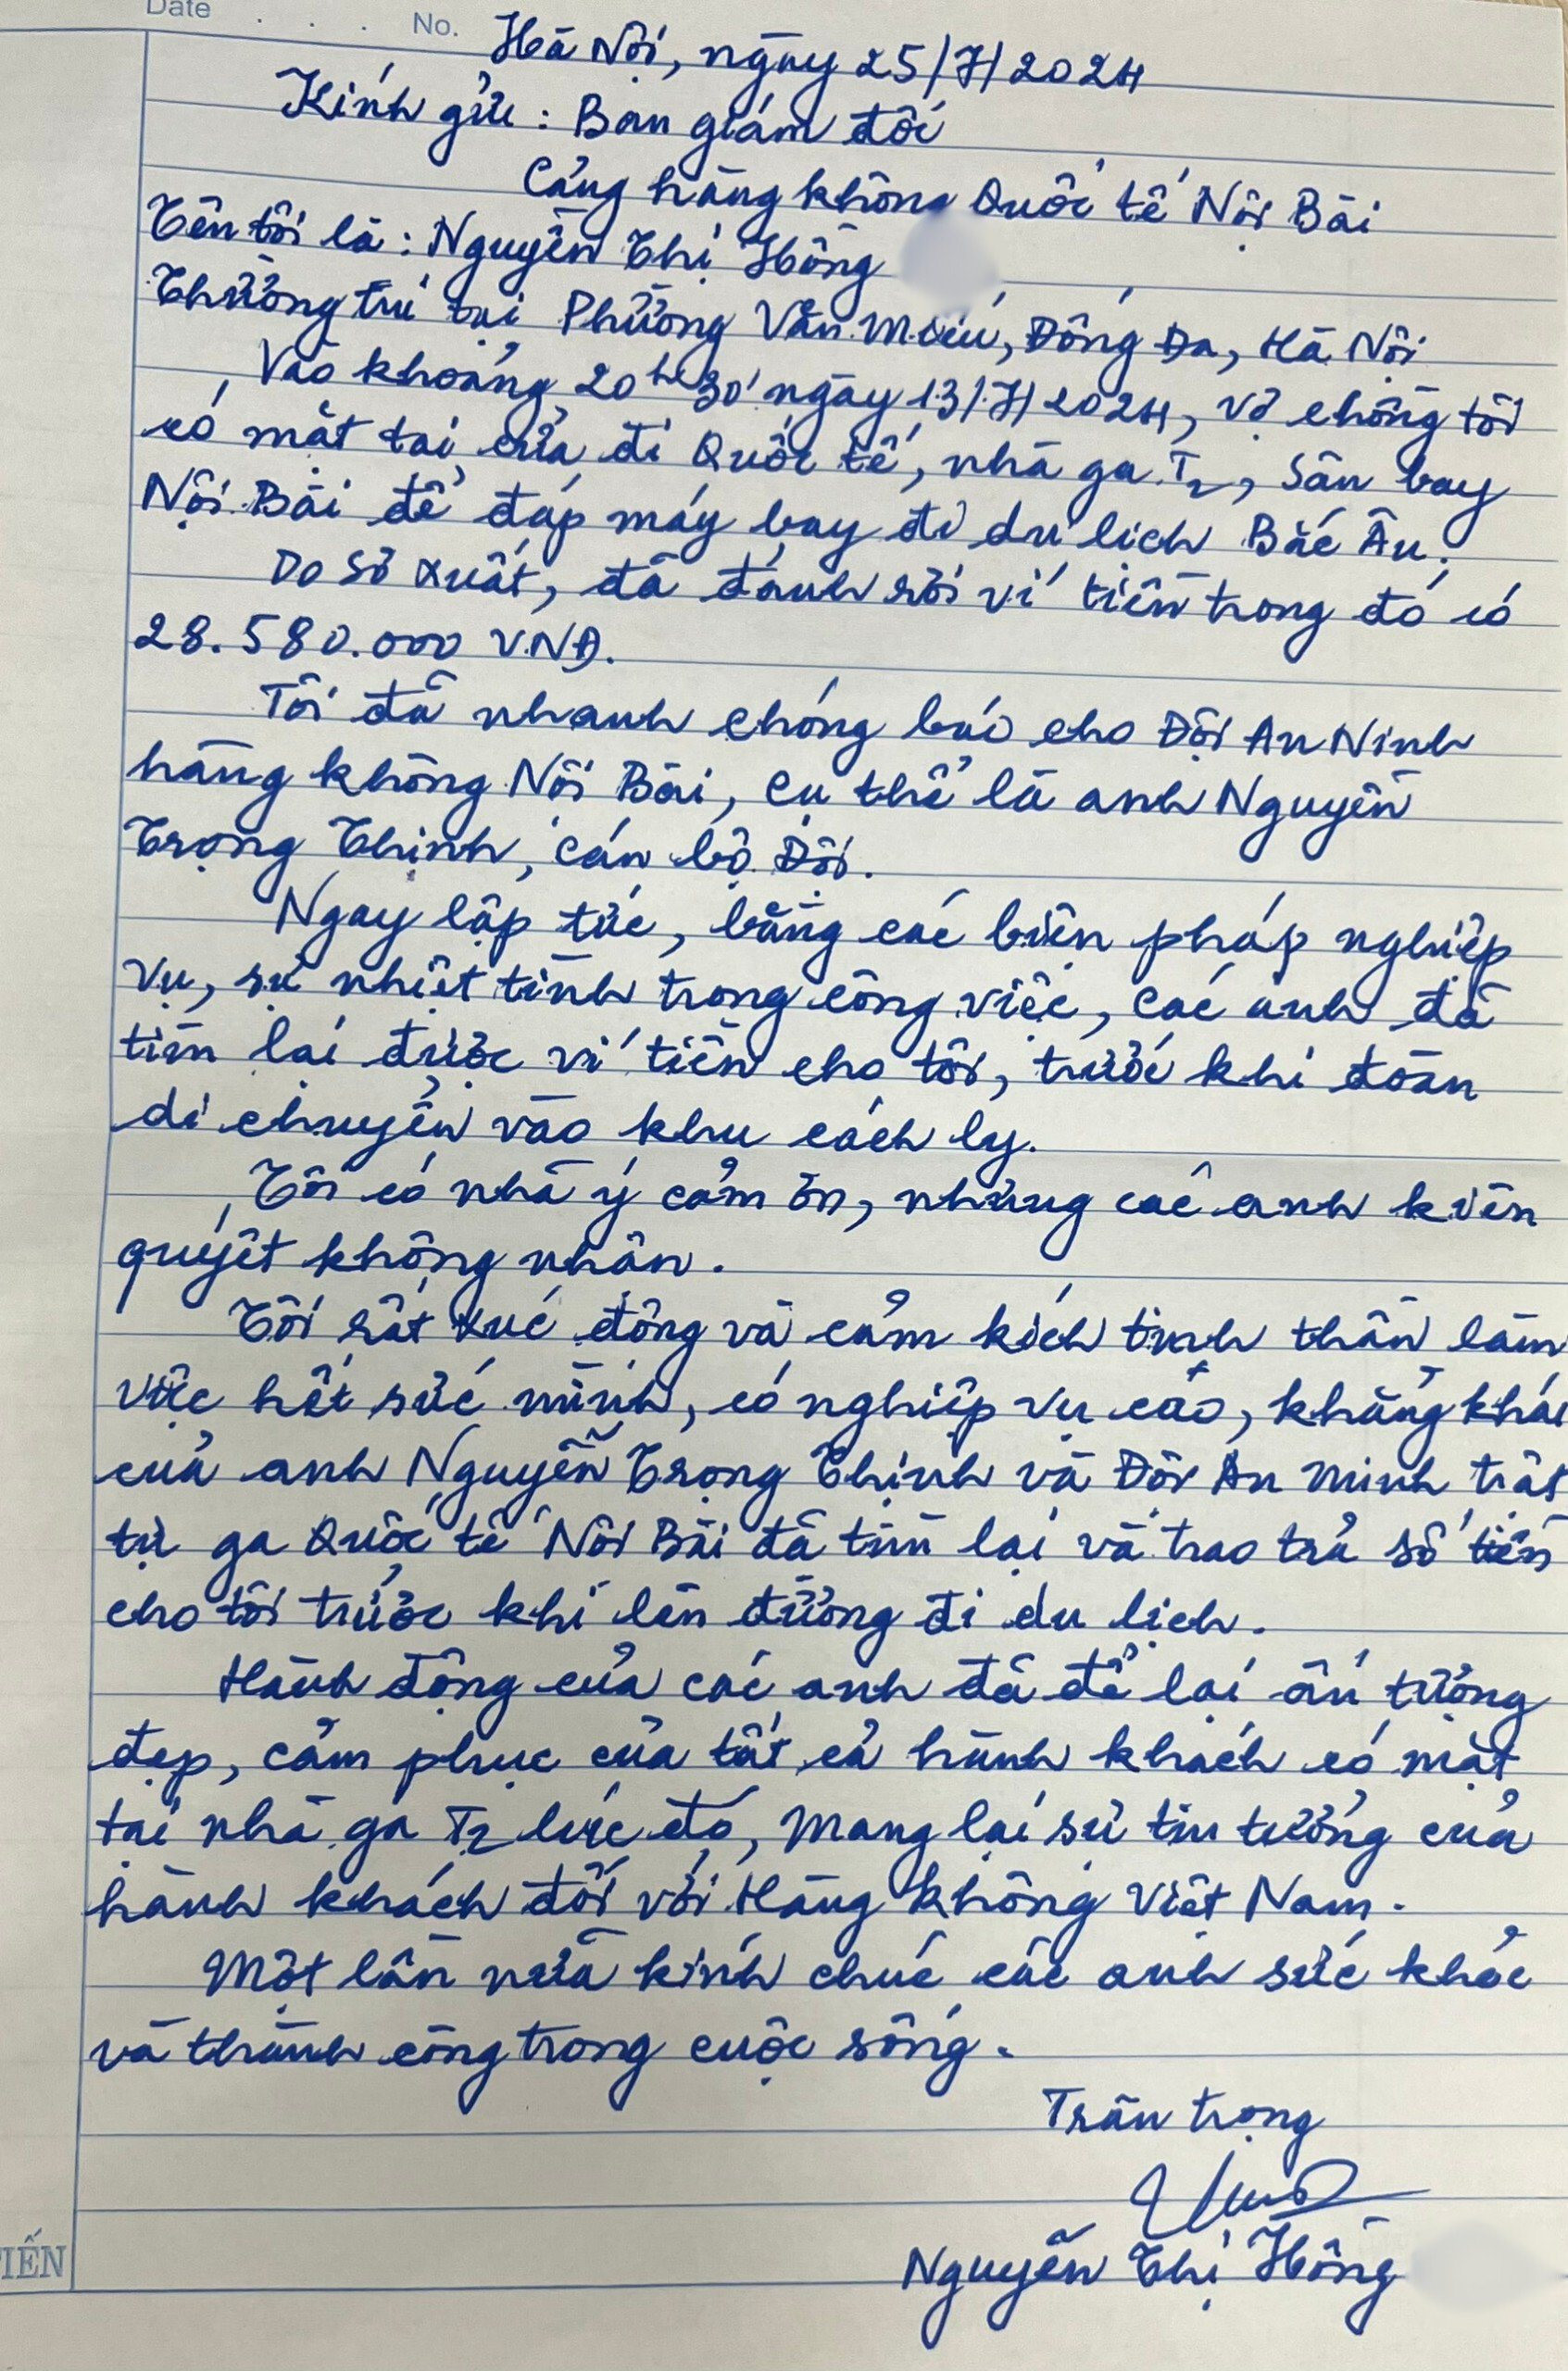 Date . . . No.
Hà Nội, ngày 25/7/2024
Kính gửi: Ban giám đốc
Cảng hàng không Quốc tế Nội Bài
Tên tôi là: Nguyễn Thị Hồng
Thường trú tại Phường Văn Miếu, Đống Đa, Hà Nội
Vào khoảng 20h30' ngày 13/7/2024, vợ chồng tôi
có mặt tại cửa đi Quốc tế, nhà ga T2, Sân bay
Nội Bài để đáp máy bay đi du lịch Bắc Âu.
Do sơ xuất, đã đánh rơi ví tiền trong đó có
28.580.000 VNĐ.
Tôi đã nhanh chóng báo cho Đội An Ninh
hàng không Nội Bài, cụ thể là anh Nguyễn
Trọng Thịnh, cán bộ Đội.
Ngay lập tức, bằng các biện pháp nghiệp
vụ, sự nhiệt tình trong công việc, các anh đã
tìm lại được ví tiền cho tôi, trước khi đoàn
di chuyển vào khu cách ly.
Tôi có nhã ý cảm ơn, nhưng các anh kiên
quyết không nhận.
Tôi rất xúc động và cảm kích tinh thần làm
việc hết sức mình, có nghiệp vụ cao, khảng khái
của anh Nguyễn Trọng Thịnh và Đội An ninh trật
tự ga Quốc tế Nội Bài đã tìm lại và trao trả số tiền
cho tôi trước khi lên đường đi du lịch.
Hành động của các anh đã để lại ấn tượng
đẹp, cảm phục của tất cả hành khách có mặt
tại nhà ga T2 lúc đó, mang lại sự tin tưởng của
hành khách đối với Hàng không Việt Nam.
Một lần nữa kính chúc các anh sức khỏe
và thành công trong cuộc sống.
Trân trọng
Nguyễn Thị Hồng
IẾN